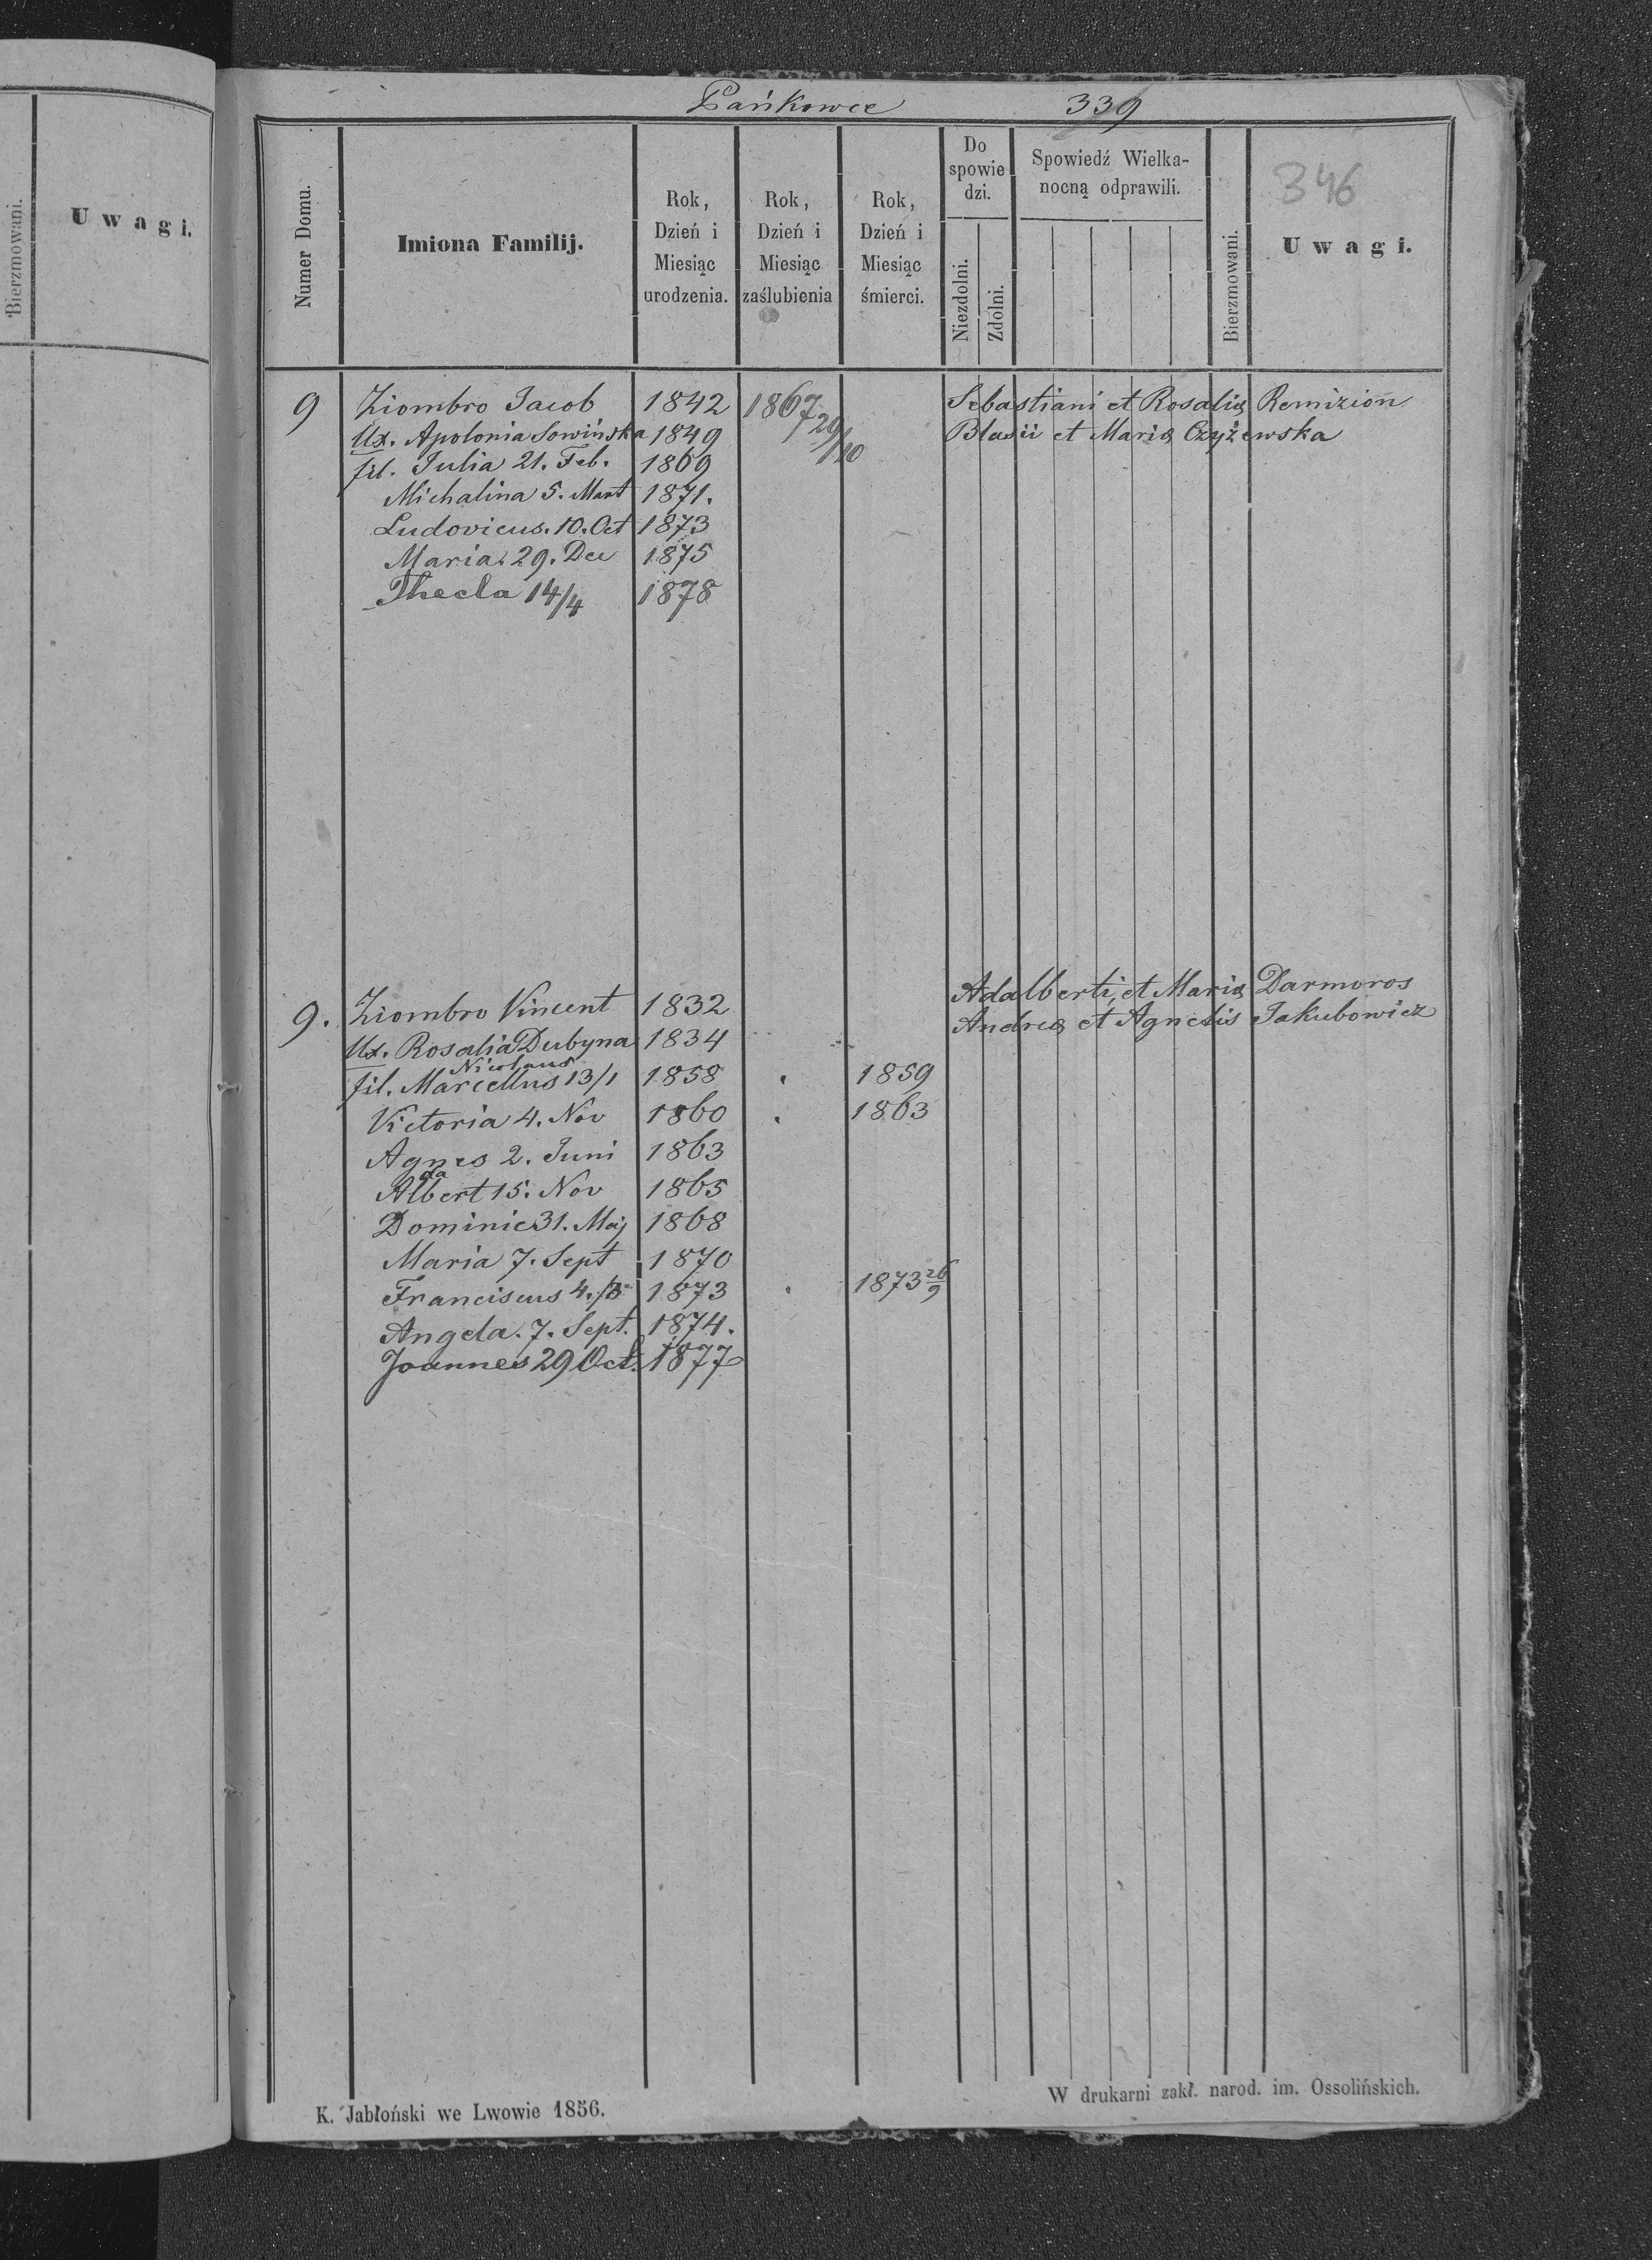 Pańkowce 339
346
Bierzmowani.
Uwagi.
Numer Domu.
Imiona Familij.
Rok, Dzień i Miesiąc urodzenia.
Rok, Dzień i Miesiąc zaślubienia
Rok, Dzień i Miesiąc śmierci.
Do spowie dzi.
Niezdolni.
Zdolni.
Spowiedź Wielka-
nocną odprawili.
Bierzmowani.
Uwagi.
9 Ziombro Jacob 1842 1867 29/10 Sebastiani et Rosaliæ Remizion
Ux. Apolonia Sowińska 1849 Blasii et Mariæ Czyżewska
fil. Julia 21. Feb. 1869
Michalina 5. Mart 1871.
Ludovicus. 10. Oct 1873
Maria 29. Dec 1875
Thecla 14/4 1878
9. Ziombro Vincent 1832 Adalberti, et Mariæ Darmoros
Ux. Rosalia Dubyna 1834 Andreæ et Agnetis Jakubowicz
Nicolaus
fil. Marcellus 13/1 1858 1859
Victoria 4. Nov 1860 1863
Agnes 2. Juni 1863
da
Albert 15. Nov 1865
Dominic 31. Maj 1868
Maria 7. Sept 1870
Franciscus 1873 1873 26/9
Angela. 7. Sept. 1874.
Joannes 29 Oct. 1877
K. Jabłoński we Lwowie 1856.
W drukarni zakł. narod. im. Ossolińskich.